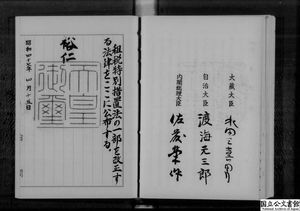 大蔵大臣 水田三喜男
自治大臣 渡海元三郎
内閣総理大臣 佐藤榮作
租税特別措置法の一部を改正す
る法律をここに公布する。
裕仁
天皇御璽
昭和四十七年 四月十五日
国立公文書館
National Archives of Japan